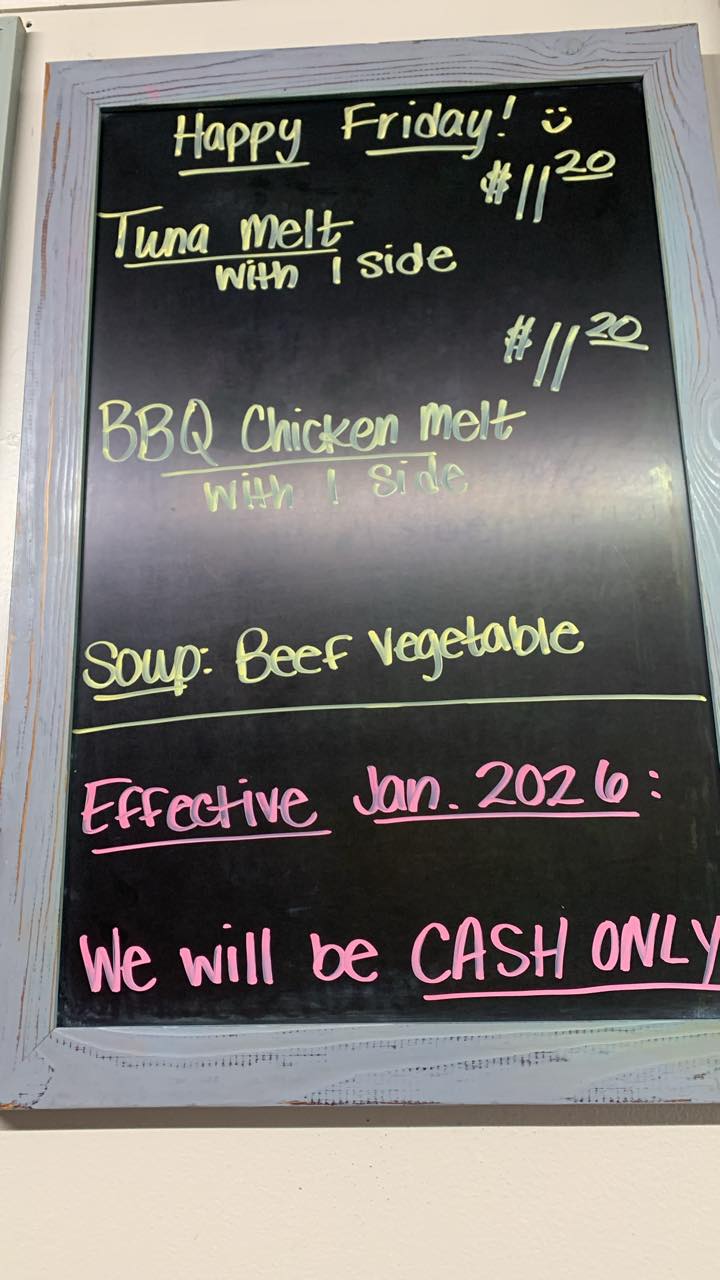 Happy Friday! :)
$11 20
Tuna melt
with 1 side
$11 20
BBQ Chicken melt
with 1 side
Soup: Beef Vegetable
Effective Jan. 2026:
We will be CASH ONLY